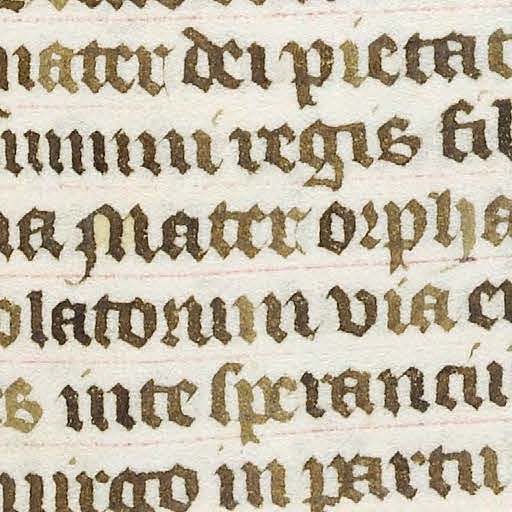 mater dei pietat
ummi regis fil
ma Mater orpha
olatorum via er
es in te sperantiu
virgo in partu